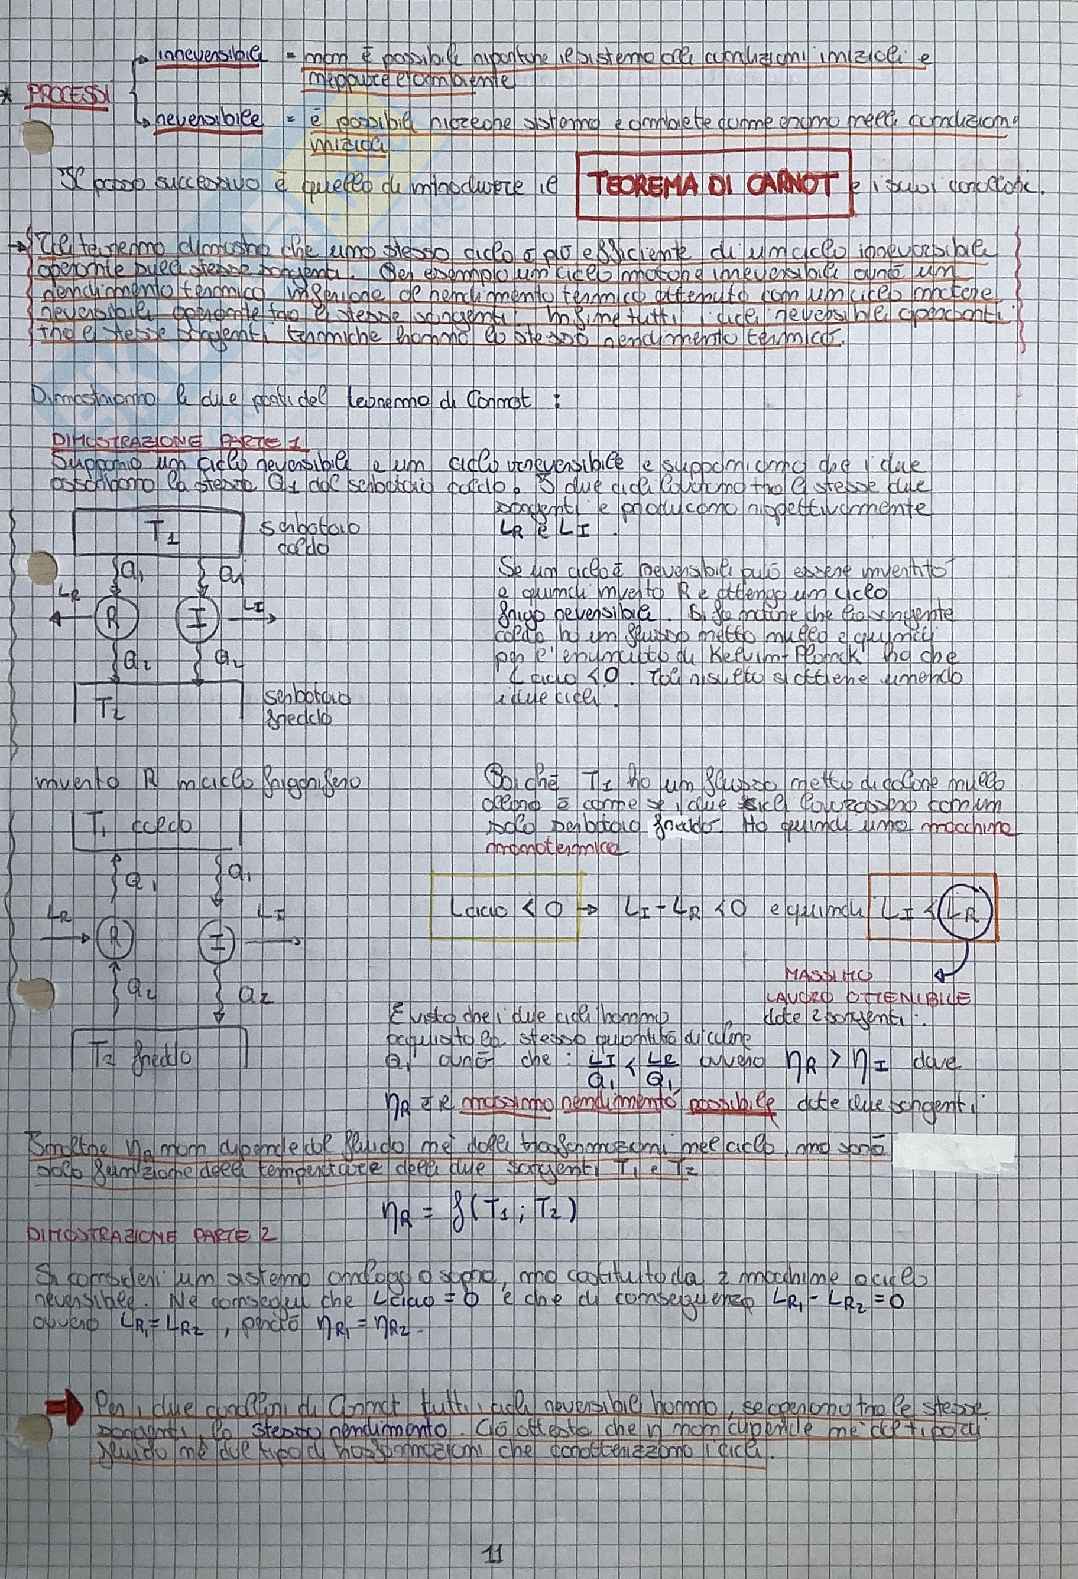 irreversibile = non è possibile riportare il sistema alle condizioni iniziali e
neppure l'ambiente
* PROCESSI
reversibile = è possibile sistema e ambiente come erano nelle condizioni
iniziali
Il passo successivo è quello di introdurre il TEOREMA DI CARNOT e i suoi corollari.
→ Tale teorema dimostra che uno stesso ciclo è più efficiente di un ciclo irreversibile
operante sulle stesse sorgenti. Per esempio un ciclo motore irreversibile avrà un
rendimento termico inferiore al rendimento termico ottenuto con un ciclo motore
reversibile operante tra le stesse sorgenti. Infine tutti i cicli reversibili operanti
tra le stesse sorgenti termiche hanno lo stesso rendimento termico.
Dimostriamo le due parti del teorema di Carnot :
DIMOSTRAZIONE PARTE 1
un ciclo reversibile e un ciclo irreversibile e supponiamo che i due
assorbano la stessa Q1 dal serbatoio caldo. I due cicli lavorano tra le stesse due
sorgenti e producono rispettivamente
LR e LI .
T1
serbatoio
caldo
Q1
Q1
LR
R
I
LI
Q2
Q2
T2
serbatoio
freddo
Se un ciclo è reversibile può essere invertito
e quindi inverto R e ottengo un ciclo
frigo reversibile. Si fa notare che la sorgente
calda ha un flusso netto nullo e quindi
per l'enunciato di Kelvin-Planck ho che
Lciclo < 0. Tale risultato si ottiene unendo
i due cicli.
inverto R in ciclo frigorifero
T1 caldo
Q1
Q1
LR
R
I
LI
Q2
Q2
T2 freddo
Poiché T1 ha un flusso netto di calore nullo
allora è come se i due cicli lavorassero con un
solo serbatoio freddo. Ho quindi una macchina
monotermica
Lciclo < 0 → LI - LR < 0 e quindi LI < LR
MASSIMO
LAVORO OTTENIBILE
date 2 sorgenti.
E visto che i due cicli hanno
la stessa quantità di calore
Q1 avrò che : LI/Q1 < LR/Q1 ovvero ηR > ηI dove
ηR è il massimo rendimento possibile date due sorgenti.
Inoltre ηR non dipende dal fluido né dalle trasformazioni nel ciclo, ma sarà
solo funzione delle temperature delle due sorgenti T1 e T2
ηR = f(T1 ; T2)
DIMOSTRAZIONE PARTE 2
Si consideri un sistema analogo a sopra, ma costituito da 2 macchine a ciclo
reversibile. Ne consegue che Lciclo = 0 e che di conseguenza LR1 - LR2 = 0
ovvero LR1 = LR2 , perciò ηR1 = ηR2.
Per i due corollari di Carnot tutti i cicli reversibili hanno, se operano tra le stesse
sorgenti, lo stesso rendimento. Ciò attesta che η non dipende né dal tipo di
fluido né dal tipo di trasformazioni che caratterizzano i cicli.
11